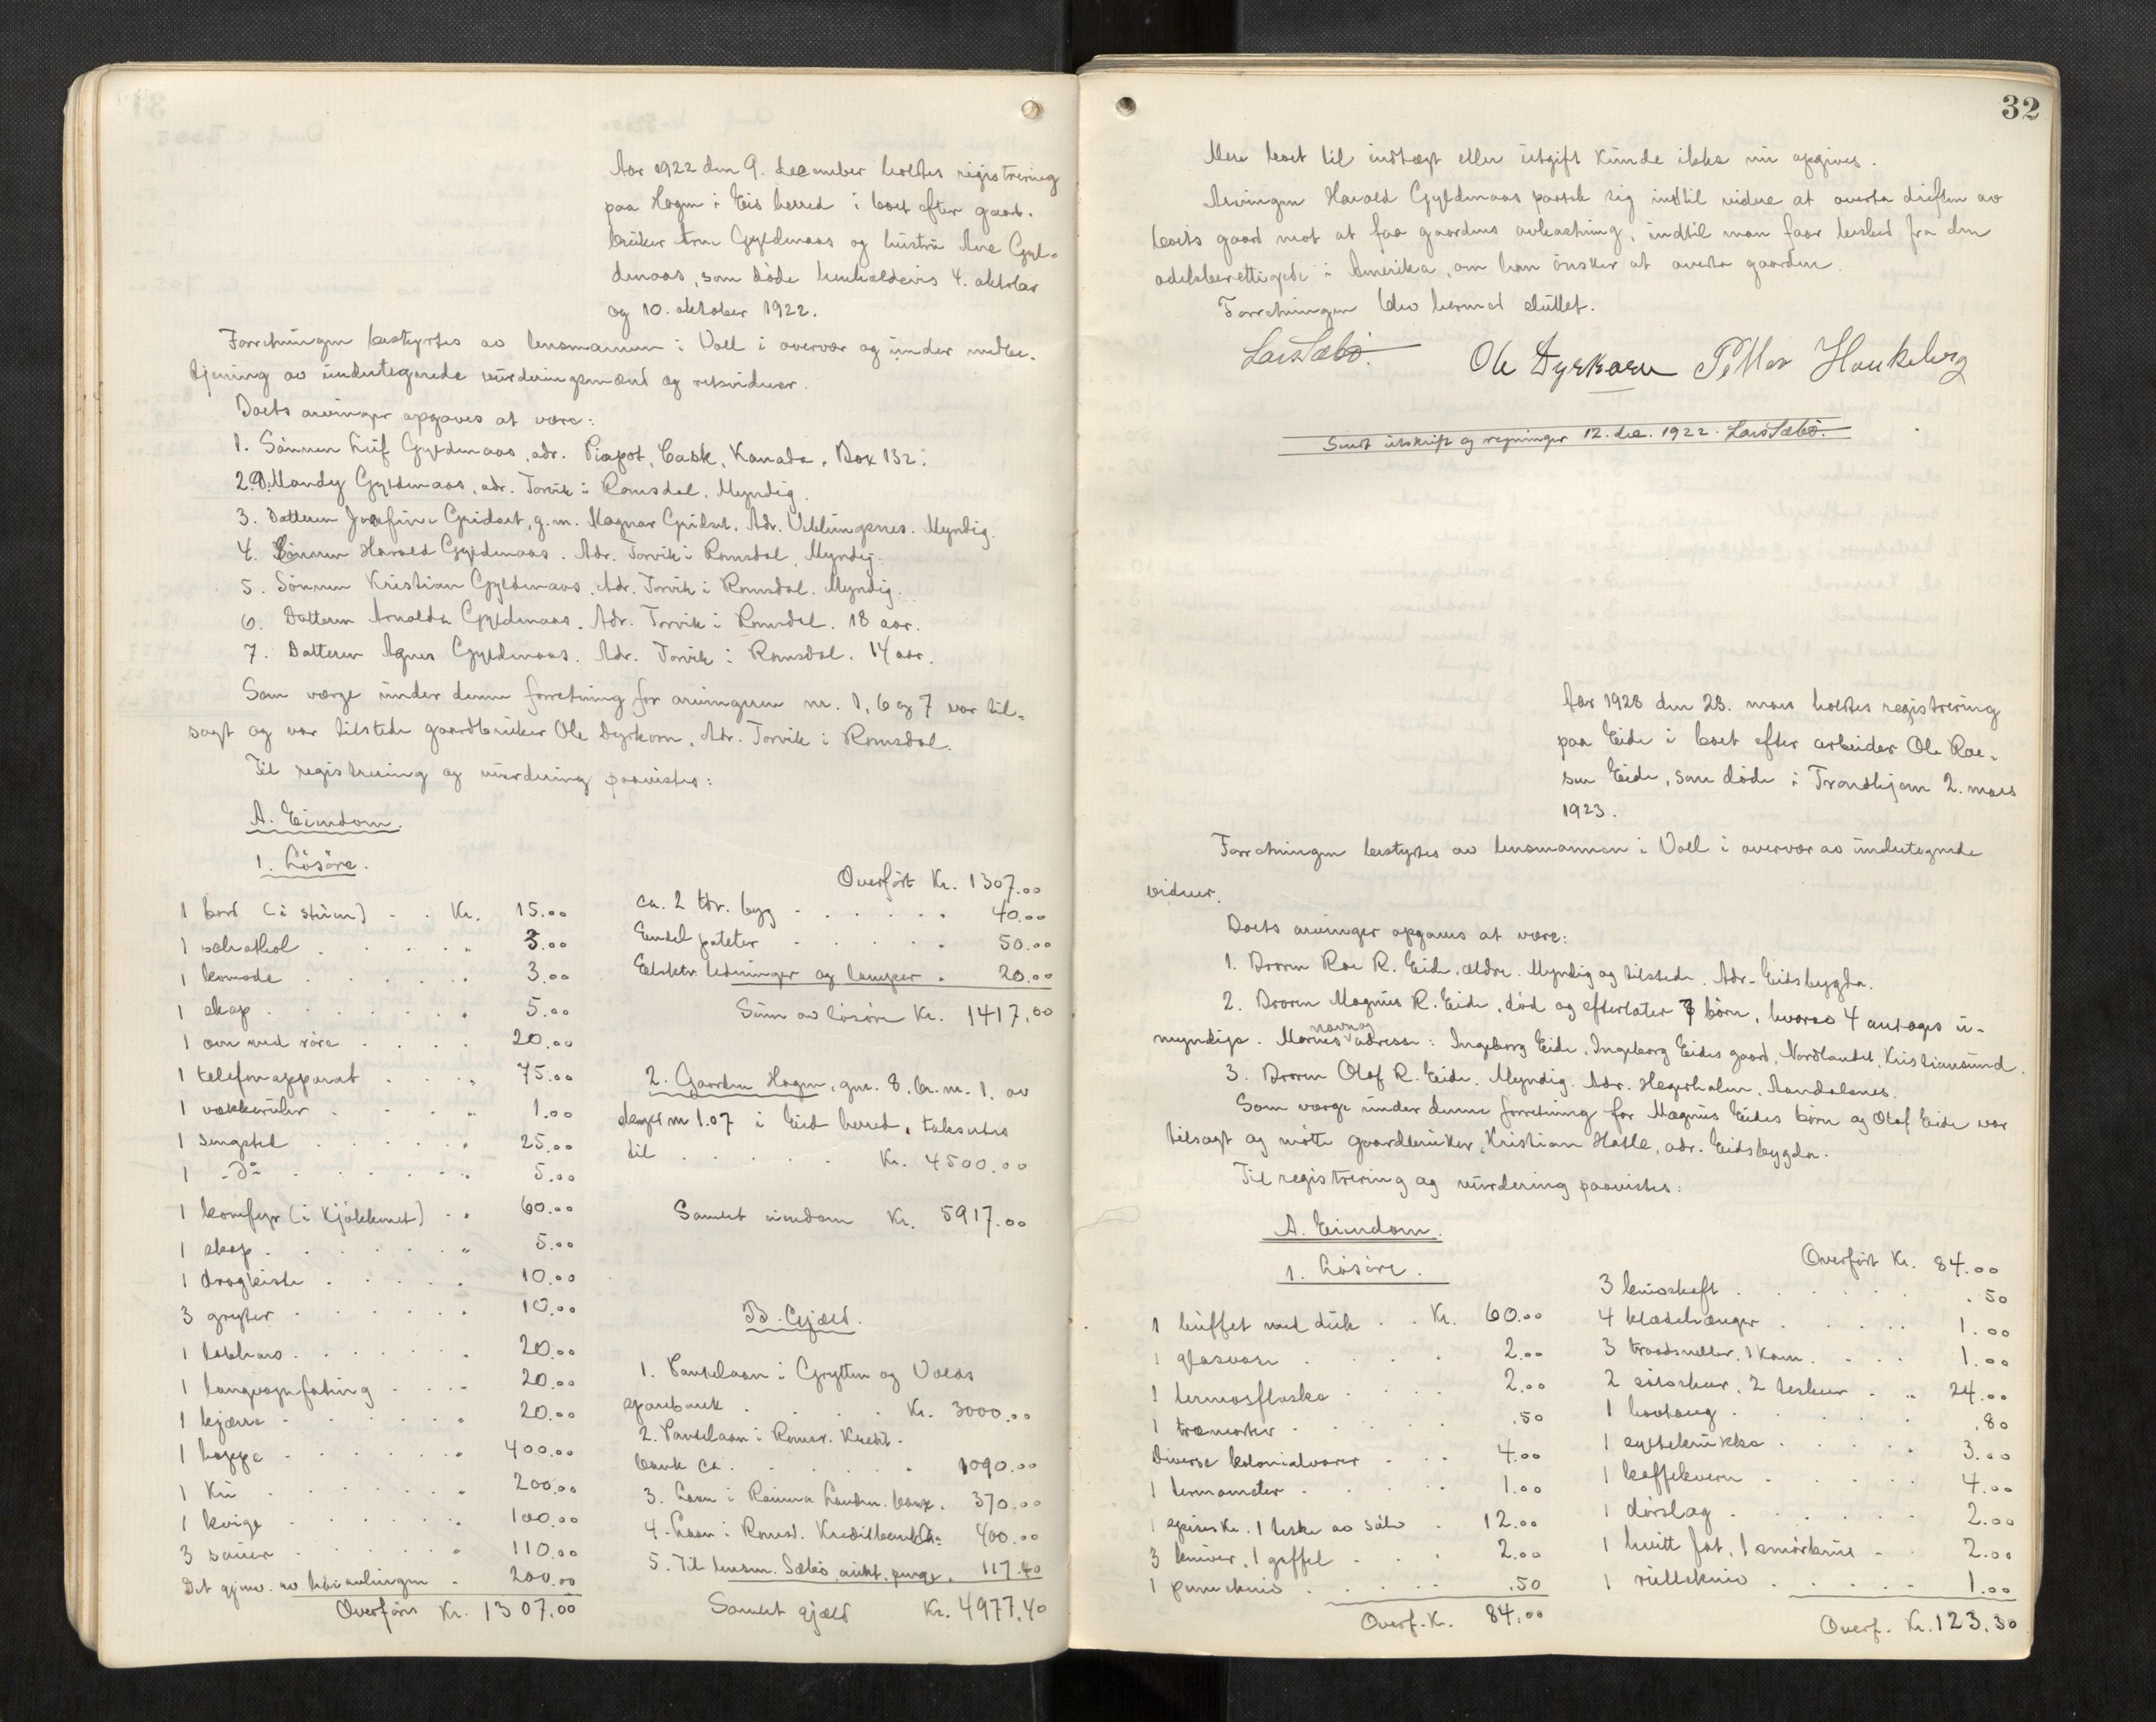 Aar 1922 den 9. december holdtes registrering
paa Hagen i Eid herred i boet efter gaard-
bruker Arne Gyldenaas og hustru Ane Gyl-
denaas, som døde henholdsvis 4. oktober
og 10. oktober 1922.
Forretningen bestyrtes av lensmannen i Voll i overvær og under medbe-
tjening av undertegnede vurderingsmænd og retsvidner.
Boets arvinger opgaves at være:
1. Sønnen Leif Gyldenaas, adr. Piapot, Sask, Kanada, Box 132.
2. D. Mandy Gyldenaas, adr. Torvik i Romsdal, Myndig.
3. Datteren Josefine Gridset, g.m. Magnar Gridset, Adr. Veblungsnes. Myndig.
4. Sønnen Harald Gyldenaas. Adr. Torvik i Romsdal, Myndig.
5. Sønnen Kristian Gyldenaas. Adr. Torvik i Romsdal. Myndig.
6. Datteren Arnolda Gyldenaas. Adr. Torvik i Romsdal. 18 aar.
7. Datteren Agnes Gyldenaas. Adr. Torvik i Romsdal. 14 aar.
Som værge under denne forretning for arvingerne nr. 1, 6 og 7 var til-
sagt og var tilstede gaardbruker Ole Dyrkorn, Adr. Torvik i Romsdal.
Til registrering og vurdering paavistes:
A. Eiendom.
1. Løsøre.
1 bord (i stuen) . . Kr. 15.00
1 . . . . . " 3.00
1 komode . . . . . . 3.00
1 skap . . . . . . . 5.00
1 ovn med røre . . . . 20.00
1 telefonapparat . . . . 75.00
1 vækkerulr . . . . . 1.00
1 sengsted . . . . . . 25.00
1 - do . . . . . . . 5.00
1 komfyr (i kjøkkenet) . . 60.00
1 skap . . . . . . " 5.00
1 dragkiste . . . . . 10.00
3 gryter . . . . . . 10.00
1 . . . . . . 20.00
1 langvogn . . . . 20.00
1 kjærre . . . . . . 20.00
1 hoppe . . . . . . 400.00
1 ku . . . . . . . 200.00
1 kvige . . . . . . 100.00
3 sauer . . . . . " 110.00
Det gjenv. av høiavlingen . 200.00
Overføres Kr. 1307.00
Overført Kr. 1307.00
ca. 2 tdr. byg . . . . . . 40.00
Endel poteter . . . . . 50.00
Elektr. ledninger og lamper . 20.00
Sum av løsøre Kr. 1417.00
2. Gaarden Hagen, gnr. 8. br.nr. 1. av
skyld m 1.07 i Eid herred, taksertes
til . . . . . Kr. 4500.00
Samlet eiendom Kr. 5917.00
B. Gjæld.
1. Pantelaan i Grytten og Volds
sparebank . . . . . Kr. 3000.00
2. Pantelaan i Romsd. Kredit-
bank ca. . . . . . . 1090.00
3. Laan i Rauma Landm. bank. 370.00
4. Laan i Romsd. Kreditbank ca. 400.00
5. Til lensm. Sæbø, aukt. penger. 117.40
Samlet gjæld Kr. 4977.40
32
Mere boet til indtægt eller utgift kunde ikke nu opgives.
Arvingen Harald Gyldenaas paatok sig indtil videre at overta driften av
boets gaard mot at faa gaardens avkastning, indtil man faar besked fra den
odelsberettigede i Amerika, om han ønsker at overta gaarden.
Forretningen blev hermed sluttet.
Lars Sæbø. Ole Dyrkorn Petter Haukeberg
Sendt utskrift og regninger 12. des. 1922. Lars Sæbø.
Aar 1923 den 23. mars holdtes registrering
paa Eide i boet efter arbeider Ole Roe-
sen Eide, som døde i Trondhjem 2. mars
1923.
Forretningen bestyrtes av lensmannen i Voll i overvær av undertegnede
vidner.
Boets arvinger opgaves at være:
1. Broren Roe R. Eide, ældre. Myndig og tilstede. Adr. Eidsbygda.
2. Broren Magnus R. Eide, død og efterlater 7 børn, hvorav 4 antages u-
myndige. Morens navn og adresse: Ingeborg Eide, Ingeborg Eides gaard, Nordlandet, Kristiansund.
3. Broren Olaf R. Eide. Myndig. Adr. Hegerholm, Aandalsnes.
Som værge under denne forretning for Magnus Eides børn og Olaf Eide var
tilsagt og møtte gaardbruker Kristian Hatle, adr. Eidsbygda.
Til registrering og vurdering paavistes:
A. Eiendom.
1. Løsøre.
1 buffet med duk . . Kr. 60.00
1 glasvase . . . . . 2.00
1 termosflaske . . . . 2.00
1 . . . . . .50
Diverse kolonialvarer . . . 4.00
1 termometer . . . . . 1.00
1 spisesk. 1 teske av sølv . 12.00
3 kniver, 1 gaffel . . . . 2.00
1 pennekniv . . . . . .50
Overf. Kr. 84.00
Overført Kr. 84.00
3 knivskaft . . . . . . .50
4 klædehænger . . . . . 1.00
3 traadsneller, 1 kam . . . . 1.00
2 sølvskeer, 2 teskeer . .. 24.00
1 hovtang . . . . . . .80
1 syltekrukke . . . . . 3.00
1 kaffekvern . . . . . 4.00
1 dørslag . . . . . . 2.00
1 hvitt fat, 1 smørkrus . . 2.00
1 rullekniv . . . . . 1.00
Overf. Kr. 123.30